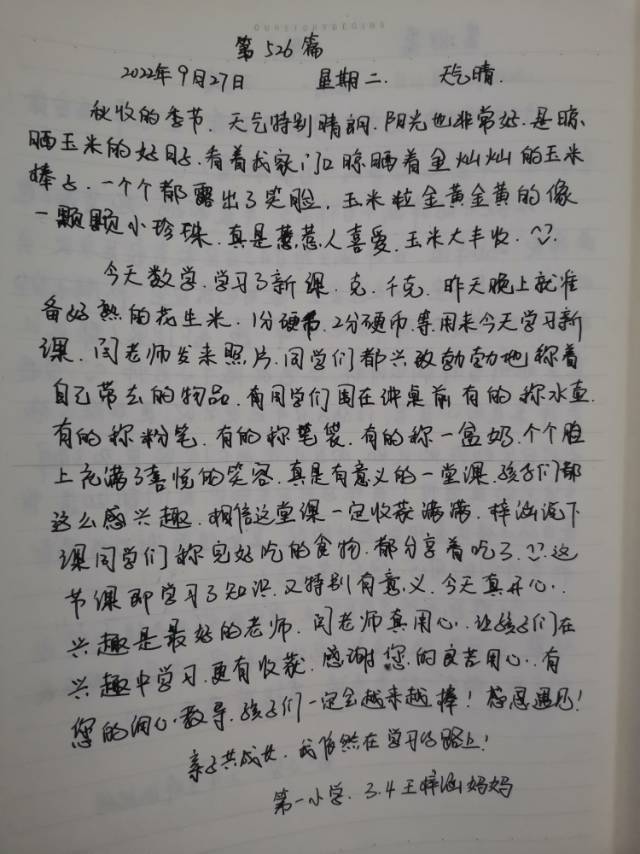 第526篇
2022年9月27日 星期二. 天气晴.
秋收的季节.天气特别晴朗.阳光也非常好.是晾
晒玉米的好日子.看着我家门口晾晒着金灿灿的玉米
棒子.一个个都露出了笑脸.玉米粒金黄金黄的像
一颗颗小珍珠.真是惹人喜爱.玉米大丰收.
今天数学.学习了新课.克.千克.昨天晚上就准
备好熟的花生米.1分硬币.2分硬币.等用来今天学习新
课.闫老师发来照片.同学们都兴致勃勃地称着
自己带去的物品.有同学们围在讲桌前有的称水壶.
有的称粉笔.有的称笔袋.有的称一盒奶.个个脸
上充满了喜悦的笑容.真是有意义的一堂课.孩子们都
这么感兴趣.相信这堂课一定收获满满.梓涵说下
课同学们称完好吃的食物.都分享着吃了.这
节课即学习了知识.又特别有意义.今天真开心.
兴趣是最好的老师.闫老师真用心.让孩子们在
兴趣中学习.更有收获.感谢您的良苦用心.有
您的用心教导.孩子们一定会越来越棒!感恩遇见!
亲子共成长.我依然在学习的路上!
第一小学.3.4王梓涵妈妈